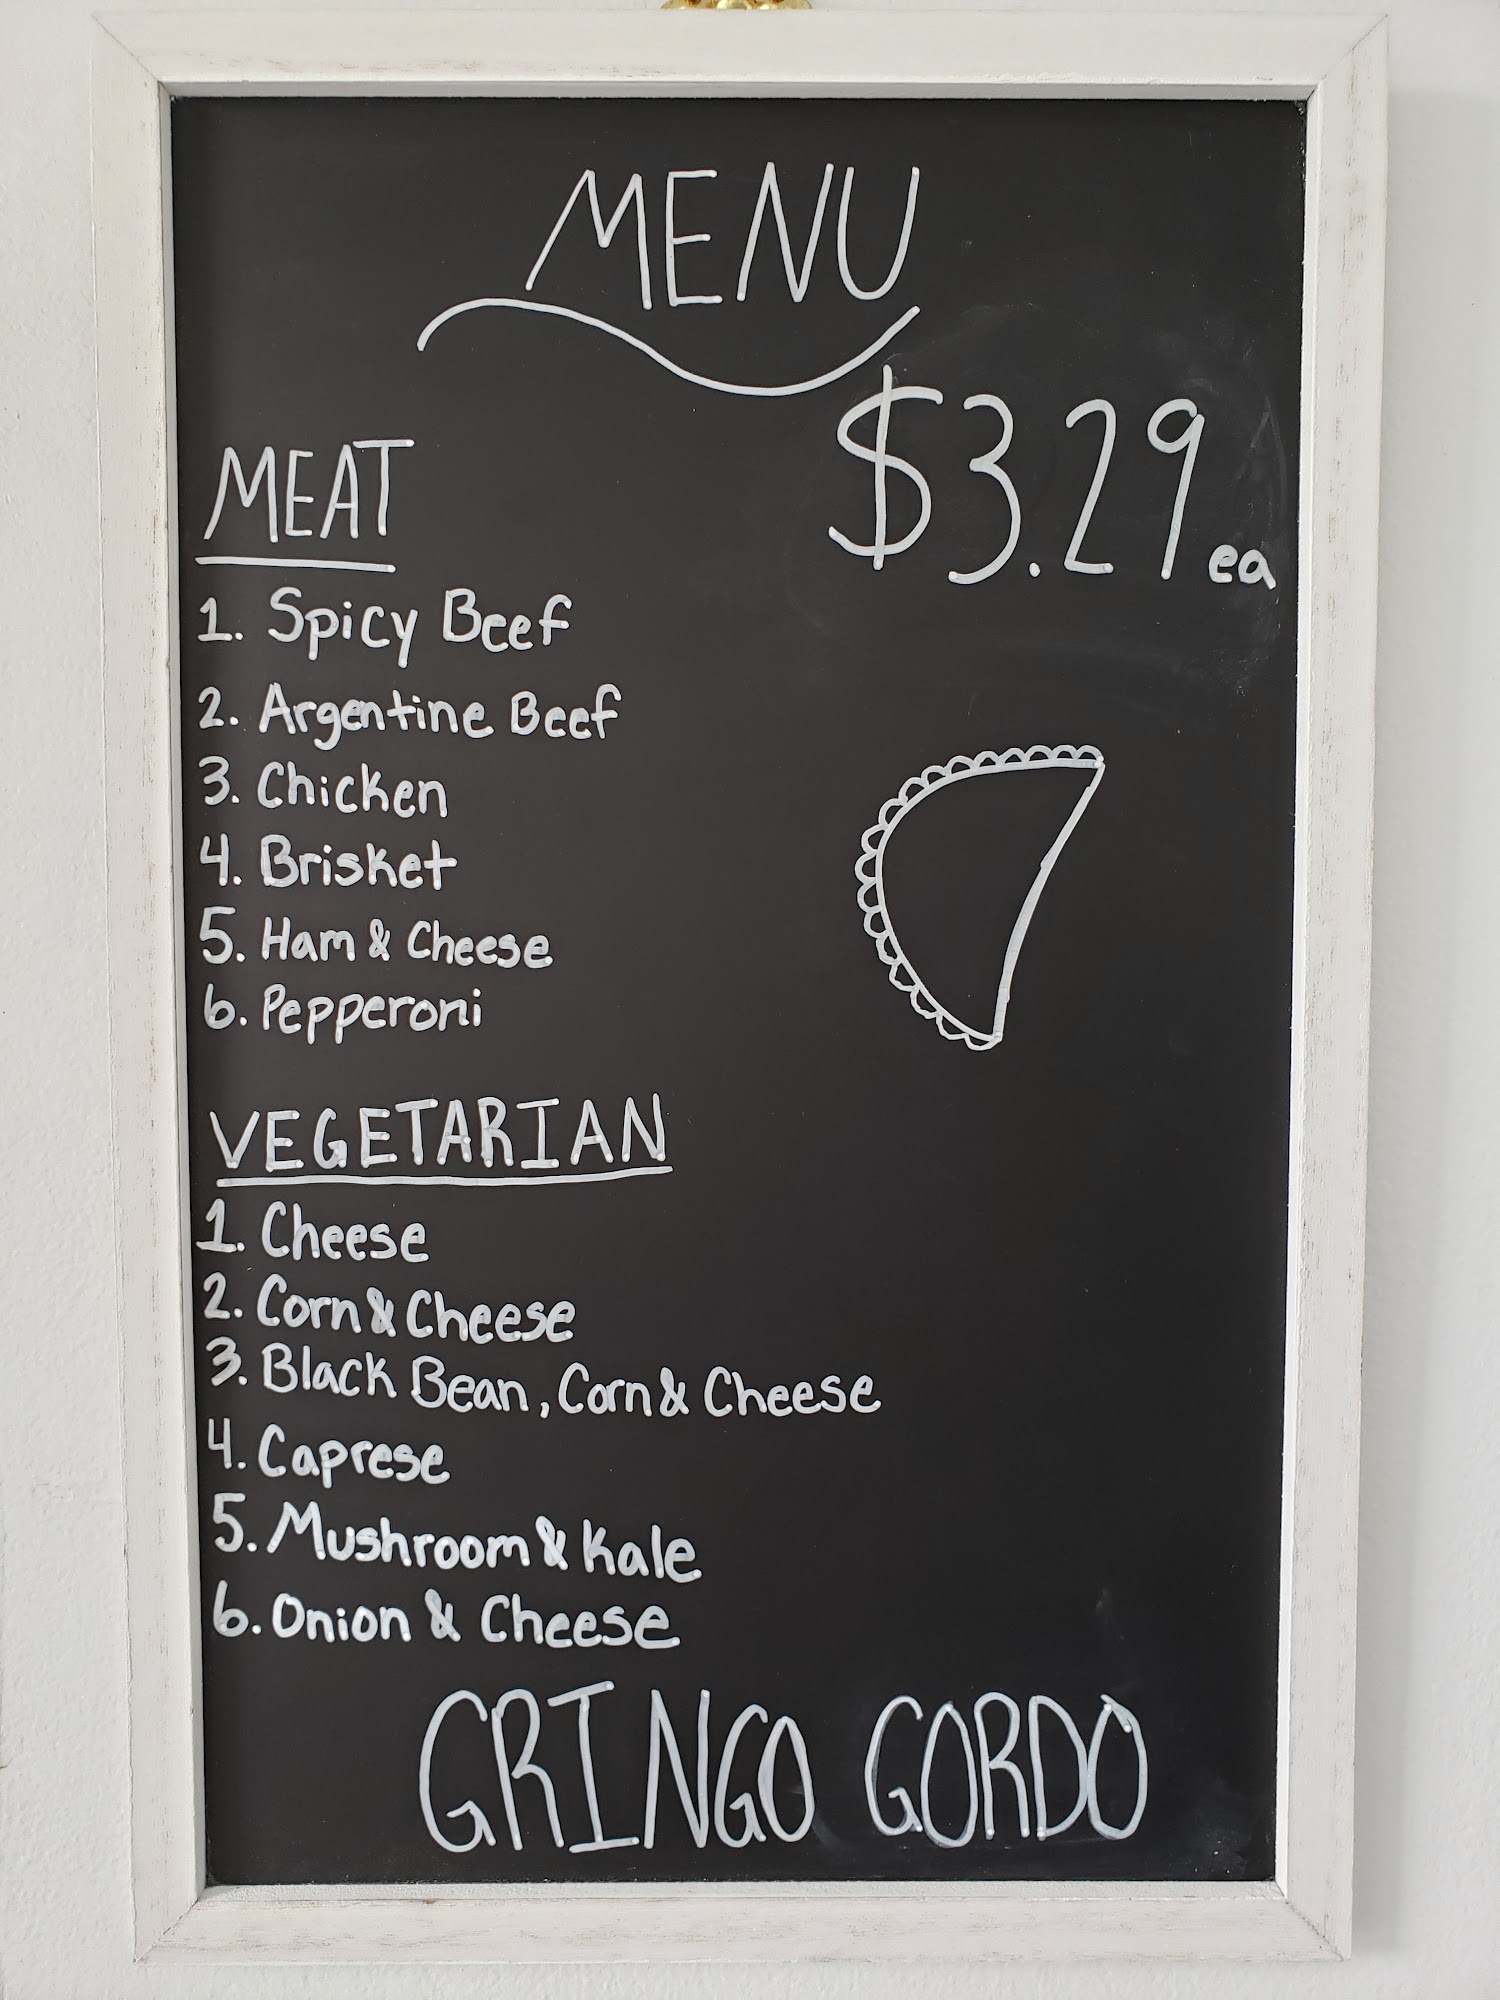 MENU
$3.29 ea
MEAT
1. Spicy Beef
2. Argentine Beef
3. Chicken
4. Brisket
5. Ham & Cheese
6. Pepperoni
VEGETARIAN
1. Cheese
2. Corn & Cheese
3. Black Bean, Corn & Cheese
4. Caprese
5. Mushroom & Kale
6. Onion & Cheese
GRINGO GORDO